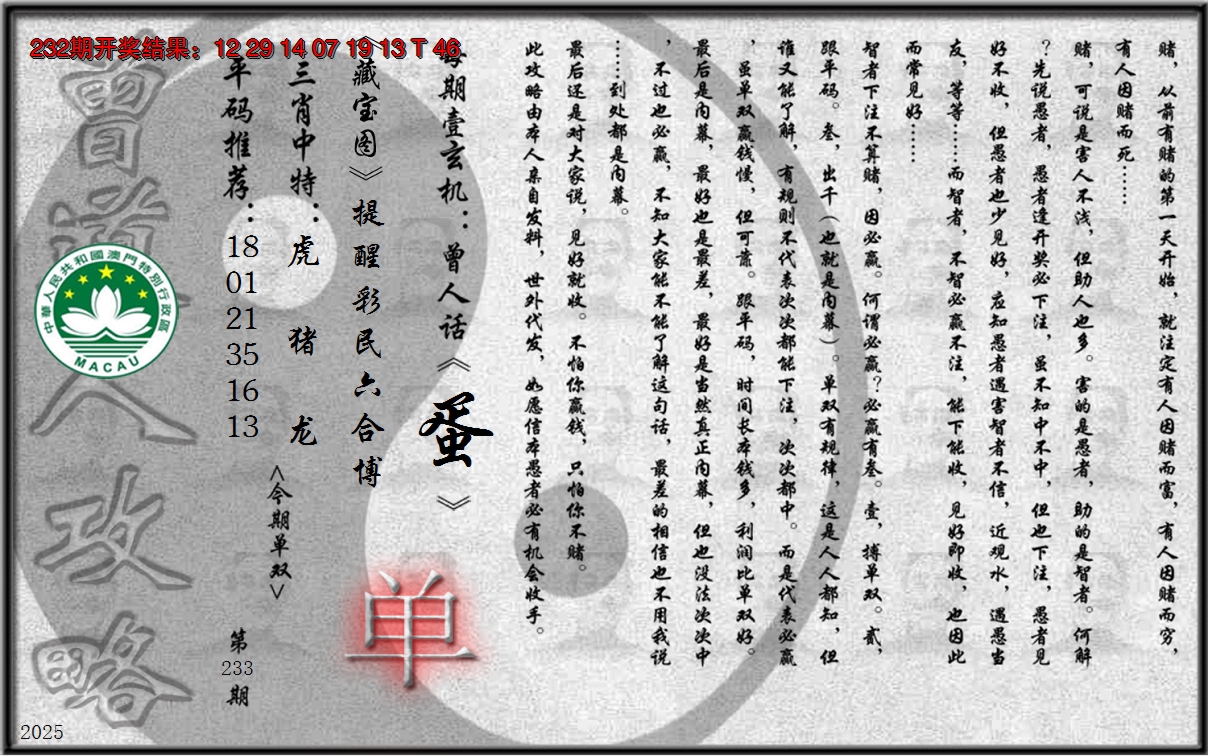 232期开奖结果：12 29 14 07 19 13 T 46
赌，从前有赌的第一天开始，就注定有人因赌而富，有人因赌而穷，
有人因赌而死……
赌，可说是害人不浅，但助人也多。害的是愚者，助的是智者。何解
？先说愚者，愚者逢开奖必下注，虽不知中不中，但也下注，愚者见
好不收，但愚者也少见好，应知愚者遇害智者不信，近观水，遇愚当
友，等等……而智者，不智必赢不注，能下能收，见好即收，也因此
而常见好……
智者下注不算赌，因必赢。何谓必赢？必赢有叁。壹，搏单双。贰，
跟平码。叁，出千（也就是内幕）。单双有规律，这是人人都知，但
谁又能了解，有规则不代表次次都能下注，次次都中。而是代表必赢
，虽单双赢钱慢，但可靠。跟平码，时间长本钱多，利润比单双好。
最后是内幕，最好也是最差，最好是当然真正内幕，但也没法次次中
，不过也必赢，不知大家能不能了解这句话，最差的相信也不用我说
……到处都是内幕。
最后还是对大家说，见好就收。不怕你赢钱，只怕你不赌。
此攻略由本人亲自发料，世外代发，如愿信本愚者必有机会收手。
每期壹玄机：曾人话《蛋》
《藏宝图》提醒彩民六合博
单
三肖中特：虎 猪 龙
<今期单双>
平码推荐：18 01 21 35 16 13
第233期
曾道人攻略
中華人民共和國澳門特別行政區
MACAU
2025